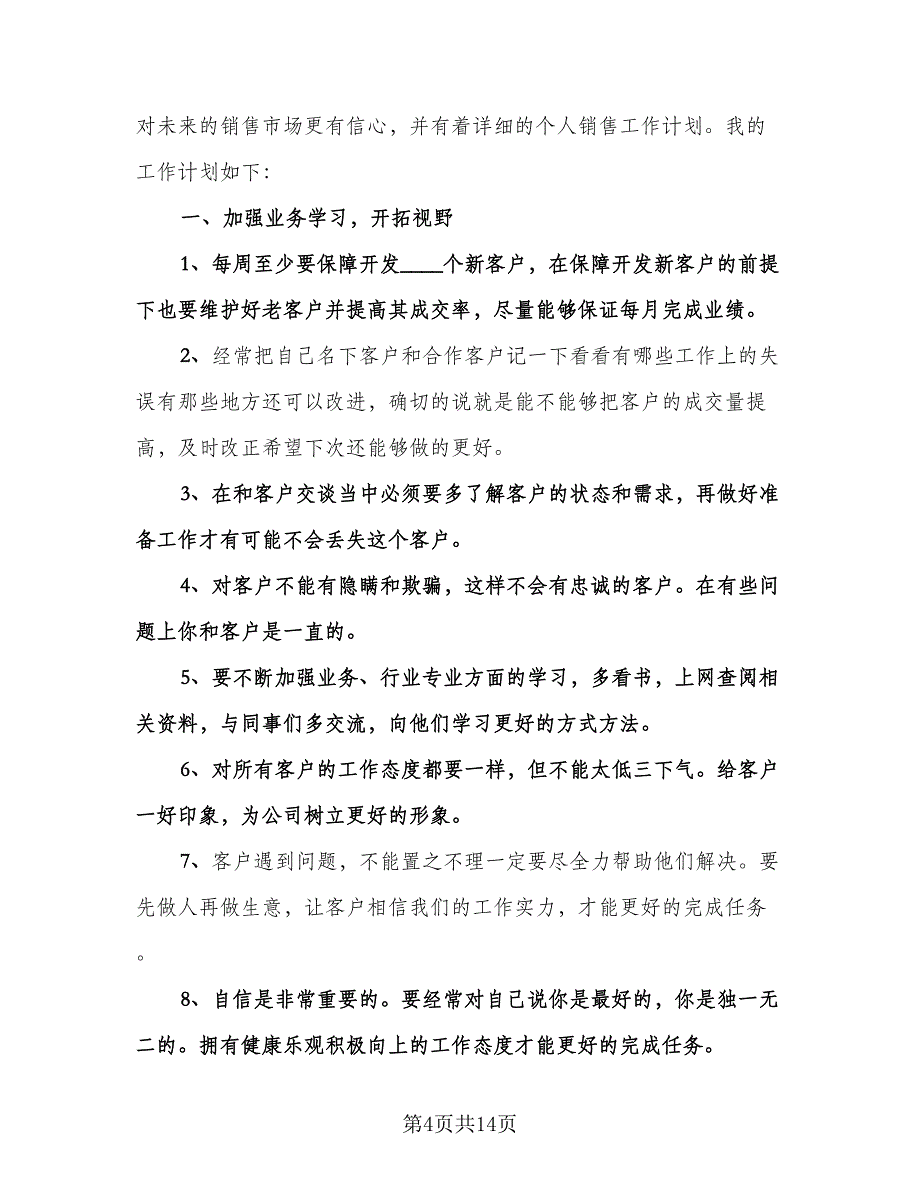 对未来的销售市场更有信心，并有着详细的个人销售工作计划。我的
工作计划如下：
一、加强业务学习，开拓视野
1、每周至少要保障开发____个新客户，在保障开发新客户的前提
下也要维护好老客户并提高其成交率，尽量能够保证每月完成业绩。
2、经常把自己名下客户和合作客户记一下看看有哪些工作上的失
误有那些地方还可以改进，确切的说就是能不能够把客户的成交量提
高，及时改正希望下次还能够做的更好。
3、在和客户交谈当中必须要多了解客户的状态和需求，再做好准
备工作才有可能不会丢失这个客户。
4、对客户不能有隐瞒和欺骗，这样不会有忠诚的客户。在有些问
题上你和客户是一直的。
5、要不断加强业务、行业专业方面的学习，多看书，上网查阅相
关资料，与同事们多交流，向他们学习更好的方式方法。
6、对所有客户的工作态度都要一样，但不能太低三下气。给客户
一好印象，为公司树立更好的形象。
7、客户遇到问题，不能置之不理一定要尽全力帮助他们解决。要
先做人再做生意，让客户相信我们的工作实力，才能更好的完成任务
。
8、自信是非常重要的。要经常对自己说你是最好的，你是独一无
二的。拥有健康乐观积极向上的工作态度才能更好的完成任务。
第4页共14页